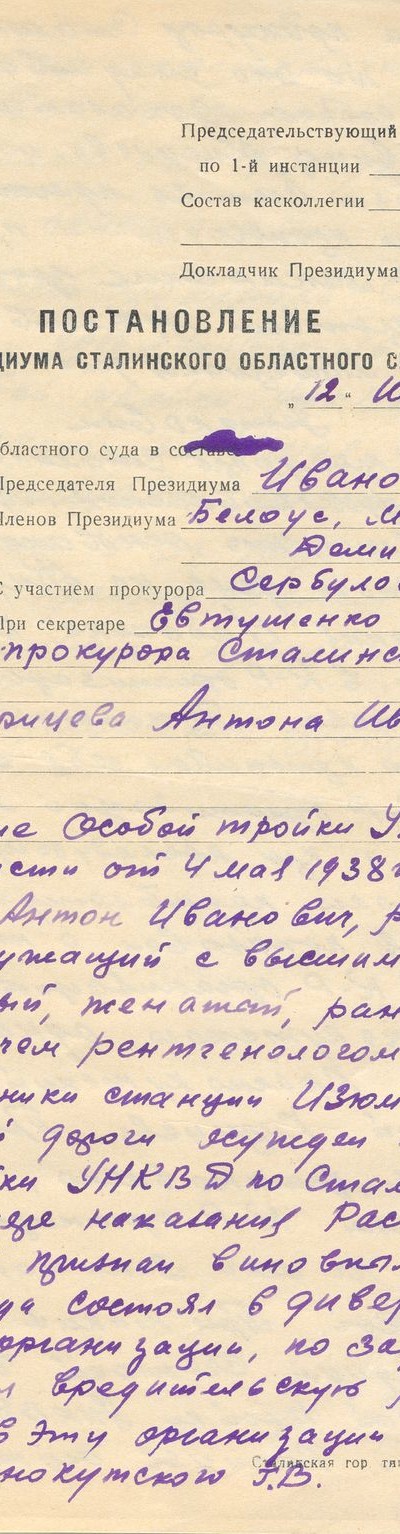 Председательствующий
по 1-й инстанции
Состав касколлегии
Докладчик Президиума
ПОСТАНОВЛЕНИЕ
ДИУМА СТАЛИНСКОГО ОБЛАСТНОГО С
„12“ И
бластного суда в составе
Председателя Президиума Ивано
Членов Президиума Белоус, М
Деми
С участием прокурора Сербуло
При секретаре Евтушенко
прокурора Сталинс
рицева Антона Ив
ие Особой тройки У
сти от 4 мая 1938г
Антон Иванович, р
ужащий с высшим
ый, женатый, ран
чем рентгенологом
ники станции Изюм
й дороги осужден
ки УНКВД по Стал
ере наказания Рас
признан виновны
да состоял в дивер
организации, по за
л вредительскую
в эту организации
Сталинская гор ти
нокутского Г.В.